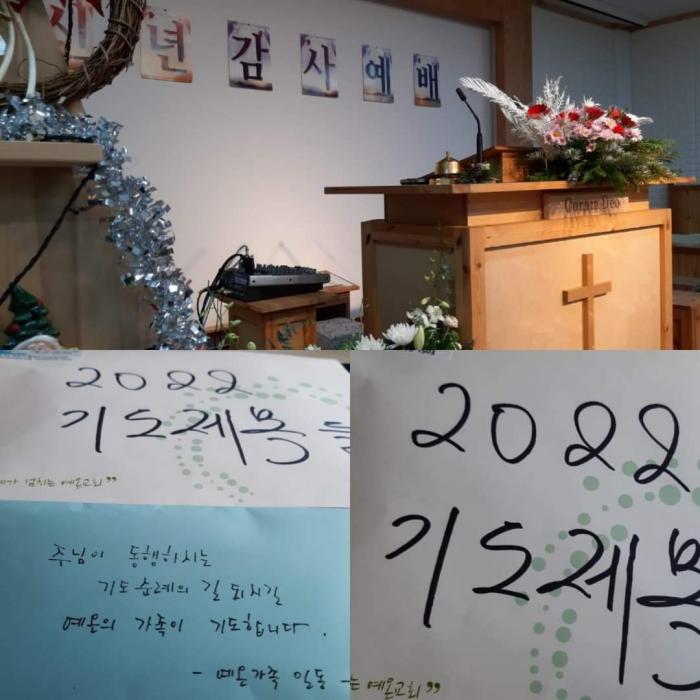 신년감사예배
Coram Deo
2022
기도제목들
넘치는 예온교회"
주님이 동행하시는
기도 순례의 길 되시길
예온의 가족이 기도합니다.
- 예온가족 일동
2022
기도제목
는 예온교회"